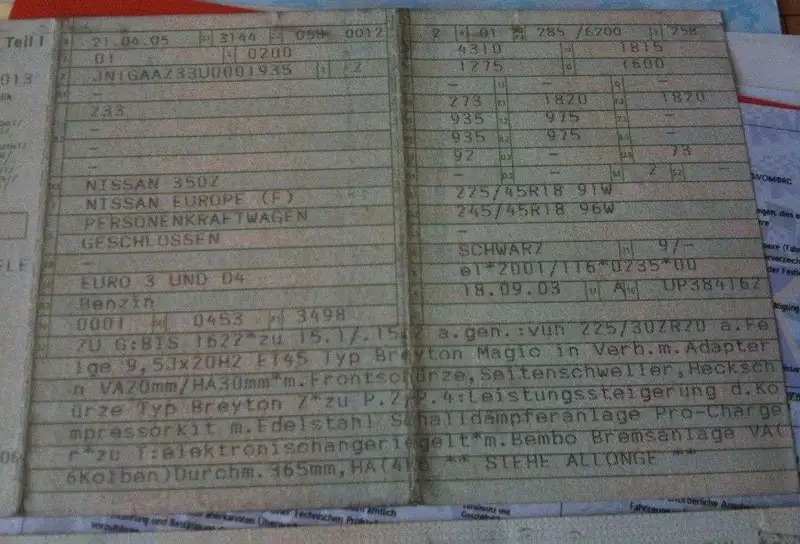 Teil I
21.04.05 3144 059 0012
01 0200
JN1GAAZ33U0001935 2
-
Z33
-
-
-
NISSAN 350Z
NISSAN EUROPE (F)
PERSONENKRAFTWAGEN
GESCHLOSSEN
EURO 3 UND D4
Benzin
0001 0453 3498
2 01 285 /6200 258
4310 1815
1275 1600
- - -
273 1820 1820
935 975 -
935 975 -
92 - 73
- - 2 -
225/45R18 91W
245/45R18 96W
-
SCHWARZ 9/-
e1*2001/116*0235*00
18.09.03 A UP384162
ZU G:BIS 1622*zu 15.1/.15.2 a.gen.:vuh 225/30ZR20 a.Fe
lge 9,5Jx20H2 ET45 Typ Breyton Magic in Verb.m.Adapter
n VA20mm/HA30mm*m.Frontschürze,Seitenschweller,Hecksch
ürze Typ Breyton Z*zu P.2/P.4:Leistungssteigerung d.Ko
mpressorkit m.Edelstahl Schalldämpferanlage Pro-Charge
r*zu T:elektronischangeriegelt*m.Bembo Bremsanlage VA(
6Kolben)Durchm.365mm,HA(4Ko ** SIEHE ALLONGE **